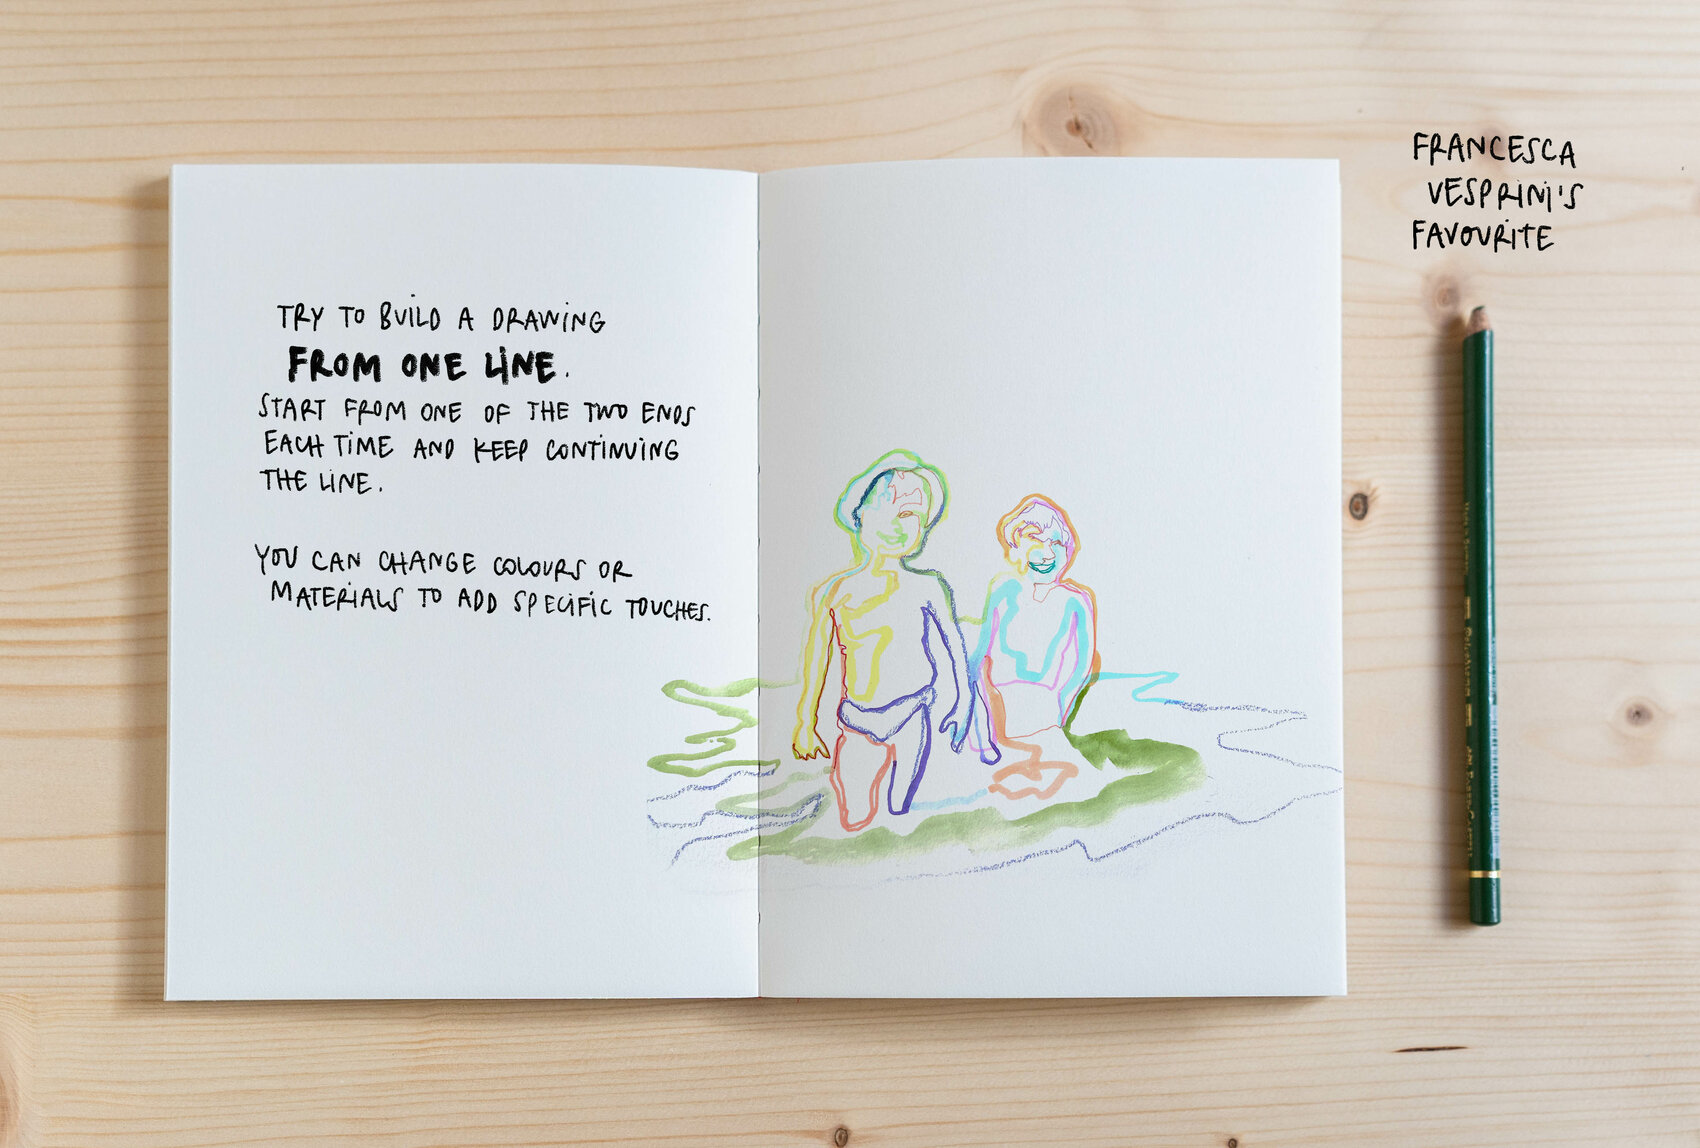 TRY TO BUILD A DRAWING
FROM ONE LINE.
START FROM ONE OF THE TWO ENDS
EACH TIME AND KEEP CONTINUING
THE LINE.
YOU CAN CHANGE COLOURS OR
MATERIALS TO ADD SPECIFIC TOUCHES.
FRANCESCA
VESPRINI'S
FAVOURITE